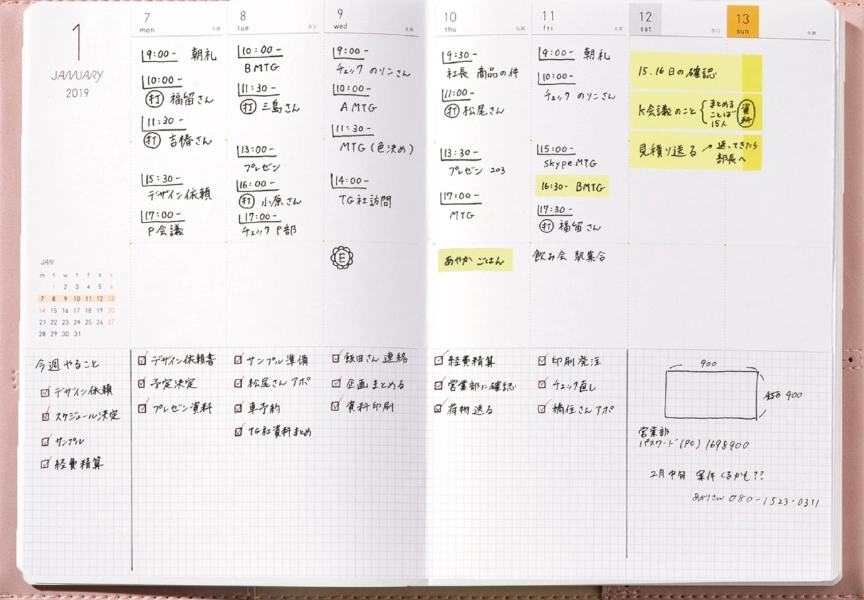 1
JANUARY
2019
7
mon
19:00- 朝礼
10:00-
打 福留さん
11:30-
打 吉橋さん
15:30-
デザイン依頼
17:00-
P会議
8
tue
10:00-
BMTG
11:30-
打 三島さん
13:00-
プレゼン
16:00-
打 小原さん
17:00-
チェック P部
9
wed
9:00-
チェック のリンさん
10:00-
AMTG
11:30-
MTG(色決め)
14:00-
TG社訪問
E
10
thu
9:30-
社長 商品の件
11:00-
打 松尾さん
13:30-
プレゼン 203
17:00-
MTG
あやか ごはん
11
fri
9:00- 朝礼
10:00-
チェック のリンさん
15:00-
skype MTG
16:30- BMTG
17:30-
打 福留さん
飲み会 駅集合
12
sat
13
sun
15.16日の確認
K会議のこと
まとめる
ことば
15人
資料
見積り送る → 返ってきたら
部長へ
JAN
m t w t f s s
1 2 3 4 5 6
7 8 9 10 11 12 13
14 15 16 17 18 19 20
21 22 23 24 25 26 27
28 29 30 31
今週やること
デザイン依頼
スケジュール決定
サンプル
経費精算
デザイン依頼書
予定決定
プレゼン資料
サンプル準備
松尾さんアポ
車予約
TG社資料まとめ
飯田さん連絡
企画まとめる
資料印刷
経費精算
営業部に確認
荷物送る
印刷発注
チェック直し
橋住さんアポ
900
400
営業部
パスワード(PC) 1698900
2月中旬 案件くるかも??
080-1523-0311